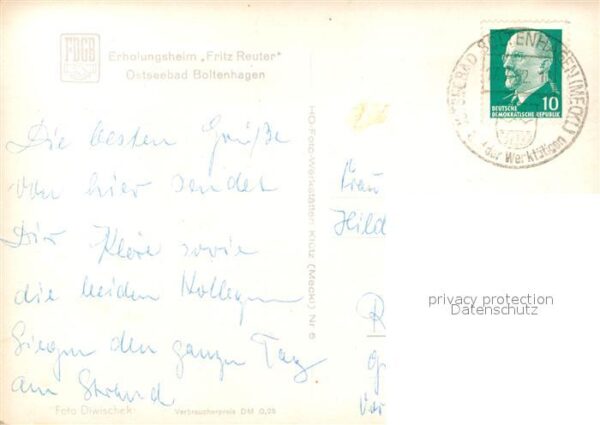 FDGB
Erholungsheim „Fritz Reuter"
Ostseebad Boltenhagen
Die besten Grüße
von hier sendet
Dir Kläre sowie
die beiden Kollegen
Liegen den ganzen Tag
am Strand
Foto Diwischek
Verbraucherpreis DM 0,25
HO-Foto-Werkstätten Klütz (Meckl) Nr 6
OSTSEEBAD BOLTENHAGEN (MECKL)
Bad der Werktätigen
10
DEUTSCHE
DEMOKRATISCHE REPUBLIK
Frau
Hild
privacy protection
Datenschutz